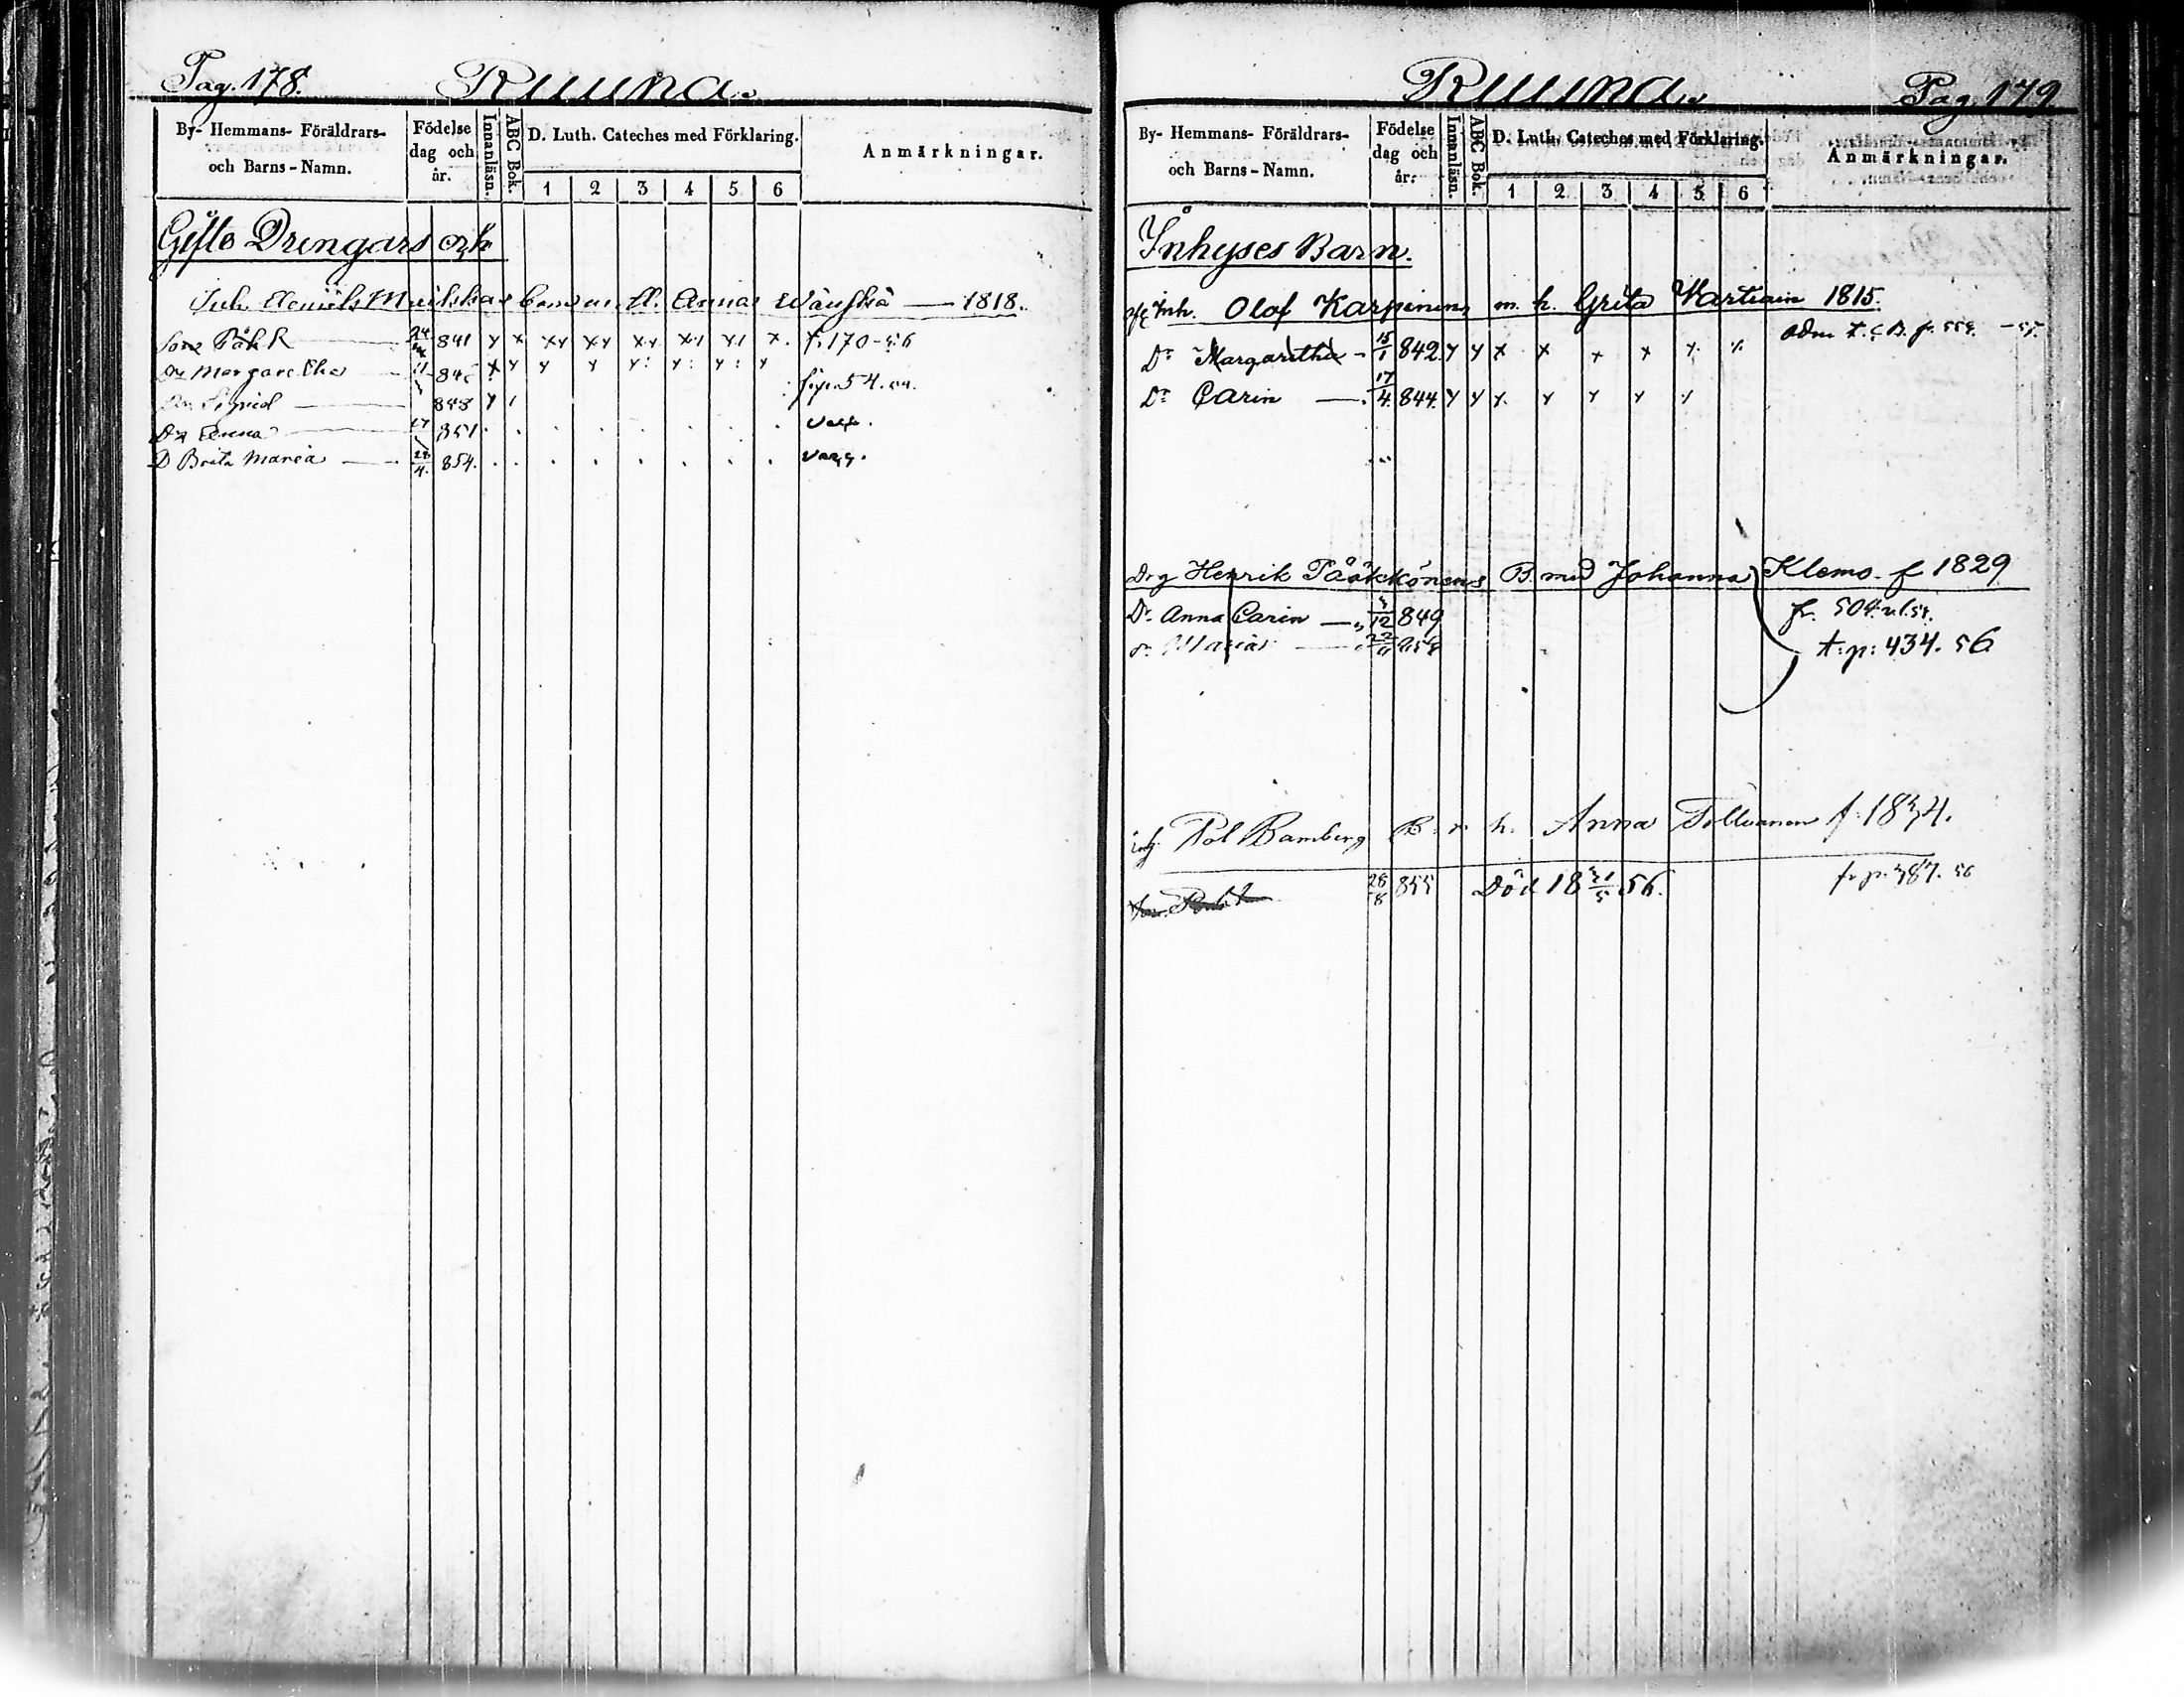 Pag. 178. Ruuna.
By- Hemmans- Föräldrars- och Barns-Namn.
Födelse dag och år.
Innanläsn.
ABC Bok.
D. Luth. Cateches med Förklaring.
1 2 3 4 5 6
Anmärkningar.
Gifte Drengars
Inh. Barn m. h. Anna 1818.
24 841 x x xx xx xx xx xx x. t. 170-56
Dr Margaretha 11 x x x x x: x: x: x fr.p. 54.
Dr Sigrid 848 x
Dr Anna 17 851
D Brita Maria 28/4 854.
Ruuna. Pag. 179
By- Hemmans- Föräldrars- och Barns-Namn.
Födelse dag och år.
Innanläsn.
ABC Bok.
D. Luth. Cateches med Förklaring.
1 2 3 4 5 6
Anmärkningar.
Inhyses Barn.
Inh. Olof Karpinens m. h. Greta Wartiain 1815.
Dr Margaretha - 15/1 842 x x x x x x x x
Dr Carin 17/4 844. x x x. x x x x
Drg Henrik Pääkkönens B. med Johanna Klemo. f 1829
Dr. Anna Carin 12 849 fr. 504
Dr Maria t: p: 434. 56
Pol Bamberg B. m h. Anna f. 1834.
26/8 855 Död 18 31/5 56. fr. p. 387. 56